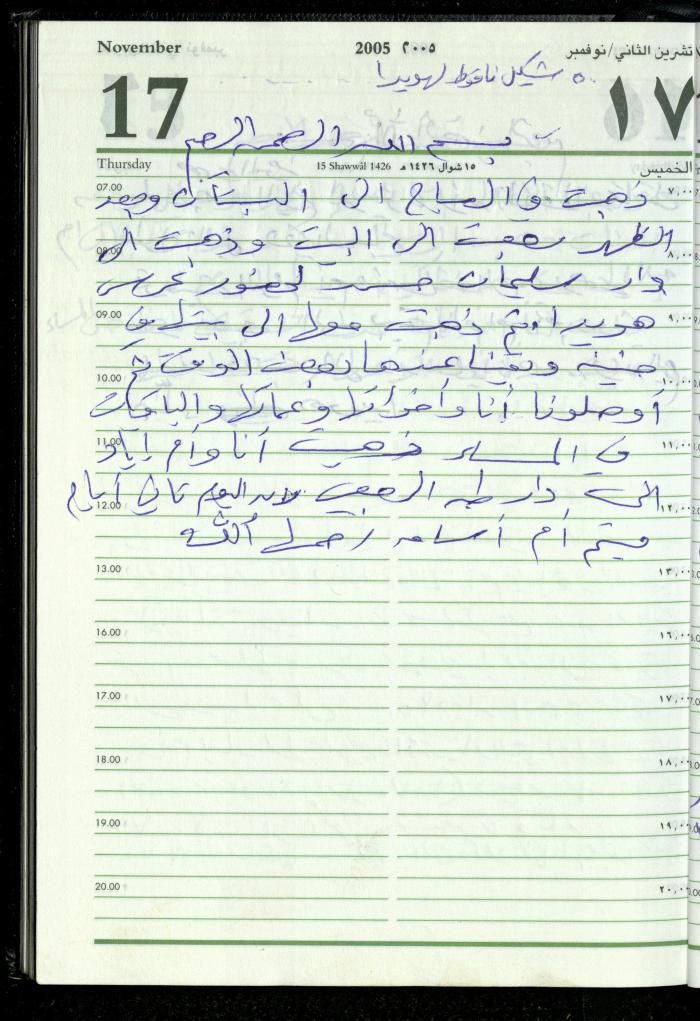 November 2005 ٢٠٠٥ تشرين الثاني/نوفمبر
٥ شيكل ناقوط لهويدا
17 ١٧
بسم الله الرحمن الرحيم
Thursday 15 Shawwâl 1426 ١٥ شوال ١٤٢٦ هـ الخميس
07.00 ذهبت في الصباح الى البستان وبعد ٧,٠٠
08.00 الظهر رجعت الى البيت وذهبت الى ٨,٠٠
دار سليمان حمد لحضور عرس
09.00 هويدا ثم ذهبت الى بيت ٩,٠٠
وبقينا عندها بعض الوقت ثم
10.00 أوصلونا أنا وأخواتها وعماتها والباقيات ١٠,٠٠
11.00 في المساء ذهبت أنا وأم إياد ١١,٠٠
12.00 الى دار طه لأنه اليوم ثاني أيام ١٢,٠٠
أم أسامه رحمها الله
13.00 ١٣,٠٠
16.00 ١٦,٠٠
17.00 ١٧,٠٠
18.00 ١٨,٠٠
19.00 ١٩,٠٠
20.00 ٢٠,٠٠